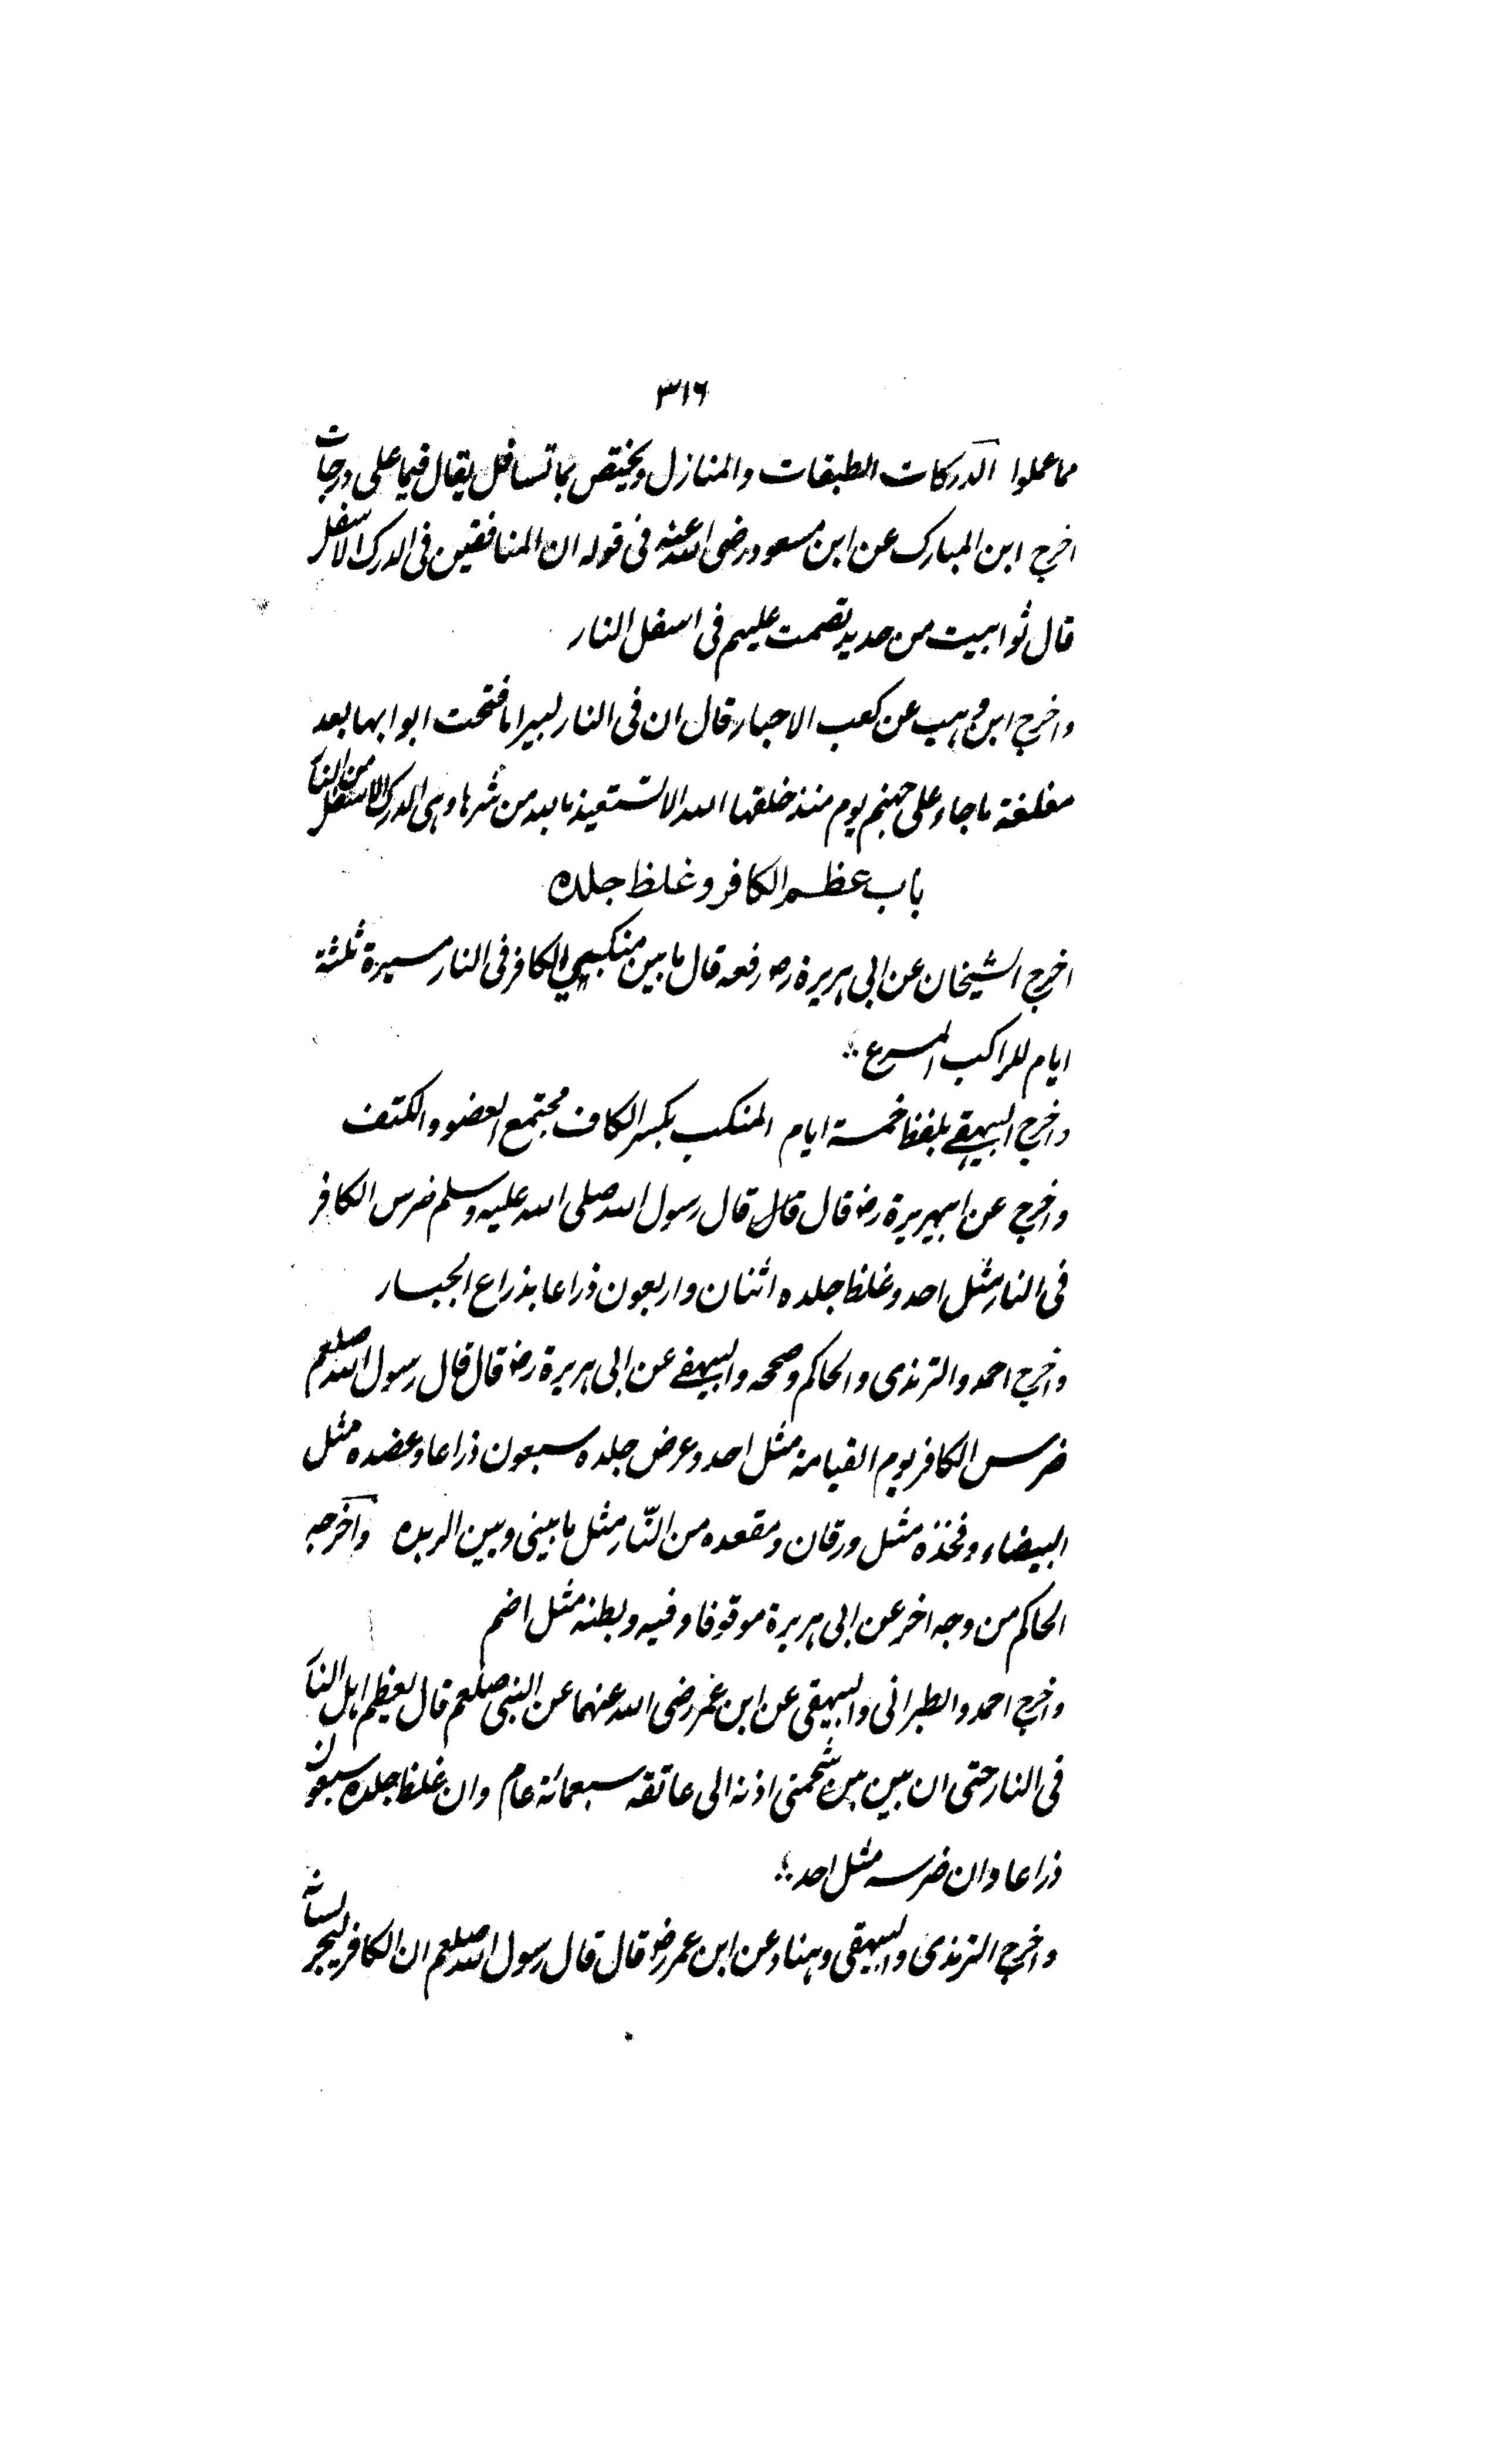 ٣١٦
مما عملوا الدركات الطبقات والمنازل ويختص بما تسافل يقال فيما على درجات
اخرج ابن المبارك عن ابن مسعود رضى الله عنه فى قوله ان المنافقين فى الدرك الاسفل
قال توابيت من حديد تصمت عليهم فى اسفل النار
واخرج ابن وهب عن كعب الاحبار قال ان فى النار لبيرا ما فتحت ابوابها بعد
مغلقة ما جاء على جهنم يوم منذ خلقها الله الا تستعيذ بالله من شرها وهى الدرك الاسفل من النار
باب عظم الكافر وغلظ جلده
اخرج الشيخان عن ابى هريرة رض رفعه قال ما بين منكبي الكافر فى النار مسيرة ثلثة
ايام للراكب المسرع
واخرج البيهقے بلفظ خمسة ايام المنكب بكسر الكاف مجتمع العضو والكتف
واخرج عن ابيهريرة رض قال قال قال رسول الله صلى الله عليه وسلم ضرس الكافر
فى النار مثل احد وغلظ جلده اثنان واربعون ذراعا بذراع الجبار
واخرج احمد والترمذى والحاكم وصححه والبيهقے عن ابى هريرة رض قال قال رسول الله صلعم
ضرس الكافر يوم القيامة مثل احد وعرض جلده سبعون ذراعا وعضده مثل
البيضاء وفخذه مثل ورقان ومقعده من النّار مثل ما بينى وبين الربذه واخرجه
الحاكم من وجه اخر عن ابى هريرة موقوفا وفيه وبطنه مثل اضم
واخرج احمد والطبرانى والبيهقى عن ابن عمر رضى الله عنهما عن النبى صلعم قال يعظم اهل النار
فى النار حتى ان بين بين شحمتى اذنه الى عاتقه سبعمائة عام وان غلظ جلده سبعون
ذراعا وان ضرسه مثل احد
واخرج الترمذى والبيهقى وهناد عن ابن عمر رض قال قال رسول الله صلعم ان الكافر ليجر لسانه